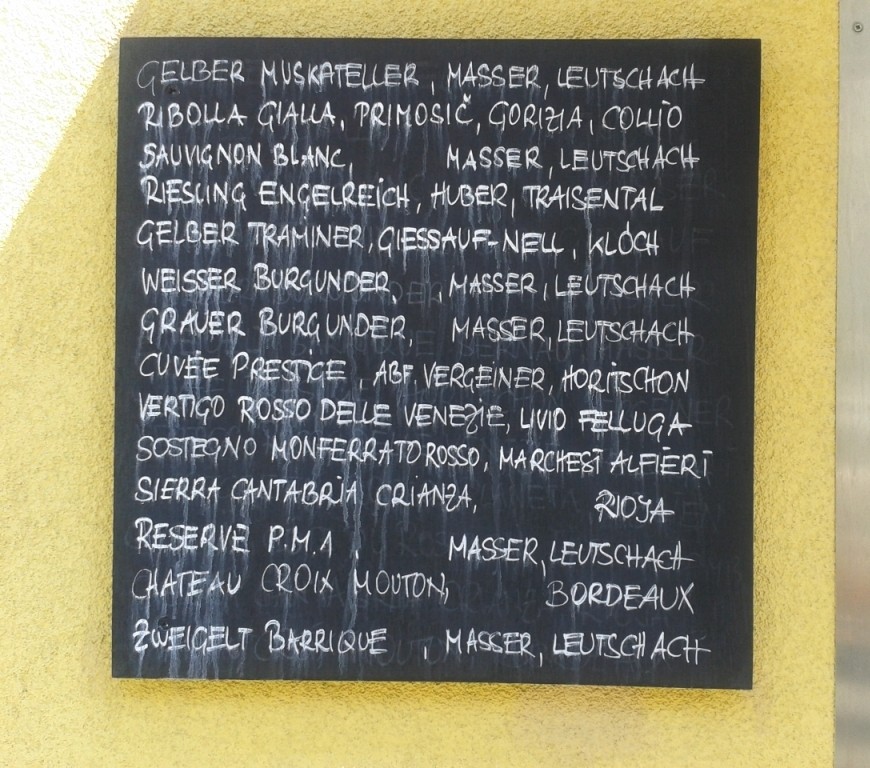 GELBER MUSKATELLER, MASSER, LEUTSCHACH
RIBOLLA GIALLA, PRIMOSIČ, GORIZIA, COLLIO
SAUVIGNON BLANC, MASSER, LEUTSCHACH
RIESLING ENGELREICH, HUBER, TRAISENTAL
GELBER TRAMINER, GIESSAUF-NELL, KLÖCH
WEISSER BURGUNDER, , MASSER, LEUTSCHACH
GRAUER BURGUNDER, MASSER, LEUTSCHACH
CUVÉE PRESTIGE, ABF. VERGEINER, HORITSCHON
VERTIGO ROSSO DELLE VENEZIE, LIVIO FELLUGA
SOSTEGNO MONFERRATO ROSSO, MARCHESI ALFIERI
SIERRA CANTABRIA CRIANZA, RIOJA
RESERVE P.M.1, MASSER, LEUTSCHACH
CHATEAU CROIX MOUTON, BORDEAUX
ZWEIGELT BARRIQUE, MASSER, LEUTSCHACH